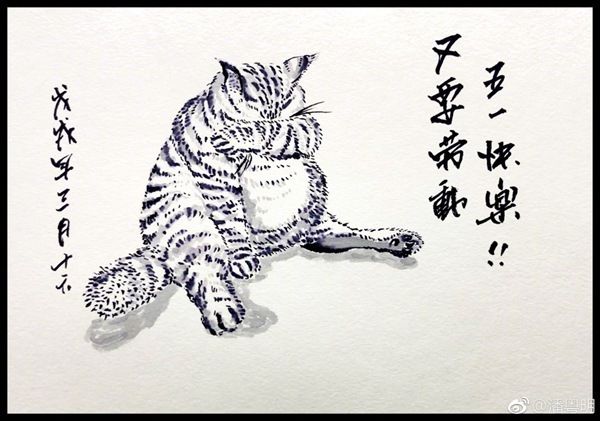 五一快樂!!
又要劳動
戊戌年三月十六
@潘粤明